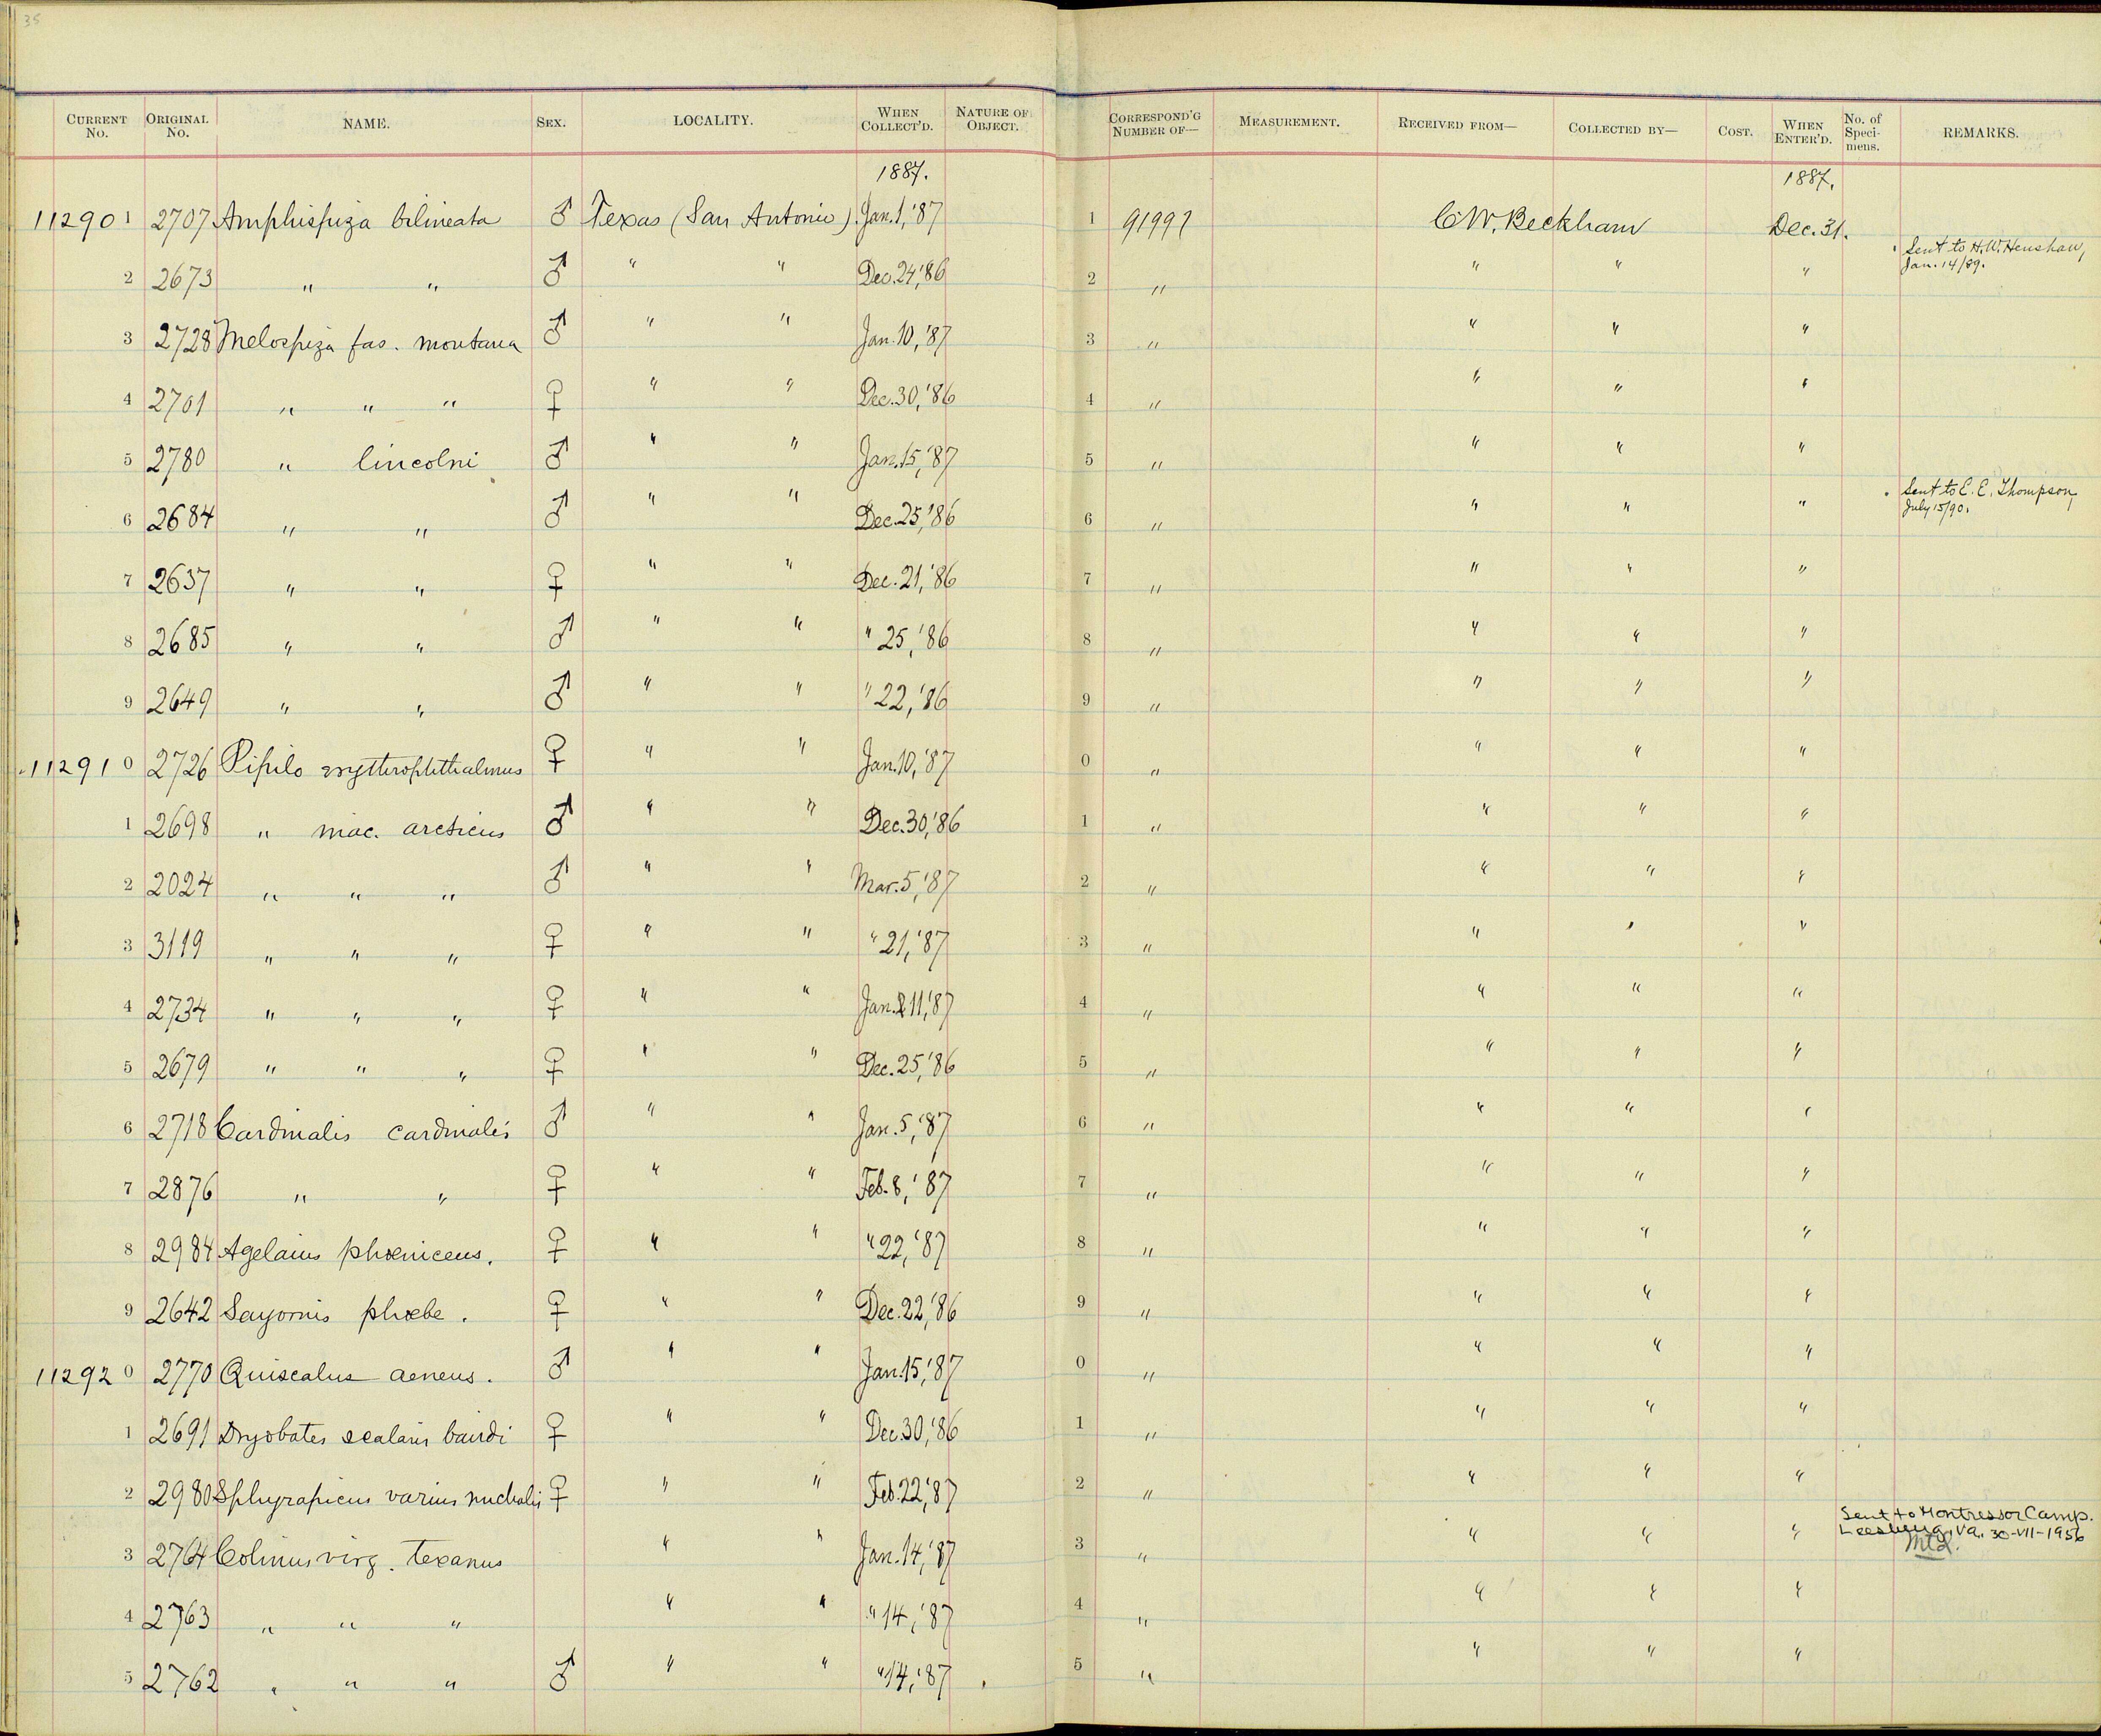 35
CURRENT No. ORIGINAL No. NAME. SEX. LOCALITY. WHEN COLLECT'D. NATURE OF OBJECT. CORRESPOND'G NUMBER OF— MEASUREMENT. RECEIVED FROM— COLLECTED BY— COST. WHEN ENTER'D. No. of Speci-mens. REMARKS.
1887. 1887.
11290 1 2707 Amphispiza bilineata ♂ Texas (San Antonio). Jan. 1, '87 1 91997 C.W. Beckham Dec. 31.
2 2673 " " ♂ " " Dec. 24, '86 2 " " " " Sent to H.W. Henshaw, Jan. 14/89.
3 2728 Melospiza fas. montana ♂ " " Jan. 10, '87 3 " " " "
4 2701 " " " ♀ " " Dec. 30, '86 4 " " " "
5 2780 " lincolni ♂ " " Jan. 15, '87 5 " " " "
6 2684 " " ♂ " " Dec. 25, '86 6 " " " " Sent to E. E. Thompson, July 15/90.
7 2637 " " ♀ " " Dec. 21, '86 7 " " " "
8 2685 " " ♂ " " " 25, '86 8 " " " "
9 2649 " " ♂ " " " 22, '86 9 " " " "
11291 0 2726 Pipilo erythrophthalmus ♀ " " Jan. 10, '87 0 " " " "
1 2698 " mac. arcticus ♂ " " Dec. 30, '86 1 " " " "
2 2024 " " " ♂ " " Mar. 5, '87 2 " " " "
3 3119 " " " ♀ " " " 21, '87 3 " " " "
4 2734 " " " ♀ " " Jan. 11, '87 4 " " " "
5 2679 " " " ♀ " " Dec. 25, '86 5 " " " "
6 2718 Cardinalis cardinalis ♂ " " Jan. 5, '87 6 " " " "
7 2876 " " ♀ " " Feb. 8, '87 7 " " " "
8 2984 Agelaius phœniceus. ♀ " " " 22, '87 8 " " " "
9 2642 Sayornis phœbe. ♀ " " Dec. 22, '86 9 " " " "
11292 0 2770 Quiscalus aeneus. ♂ " " Jan. 15, '87 0 " " " "
1 2691 Dryobates scalaris bairdi ♀ " " Dec. 30, '86 1 " " " "
2 2980 Sphyrapicus varius nuchalis ♀ " " Feb. 22, '87 2 " " " "
3 2764 Colinus virg. texanus " " Jan. 14, '87 3 " " " " Sent to Montressor Camp. Leesburg, Va. 30-VII-1956
4 2763 " " " " " " 14, '87 4 " " " "
5 2762 " " " ♂ " " " 14, '87 5 " " " "